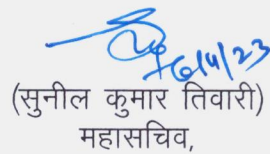 6/4/23
(सुनील कुमार तिवारी)
महासचिव,